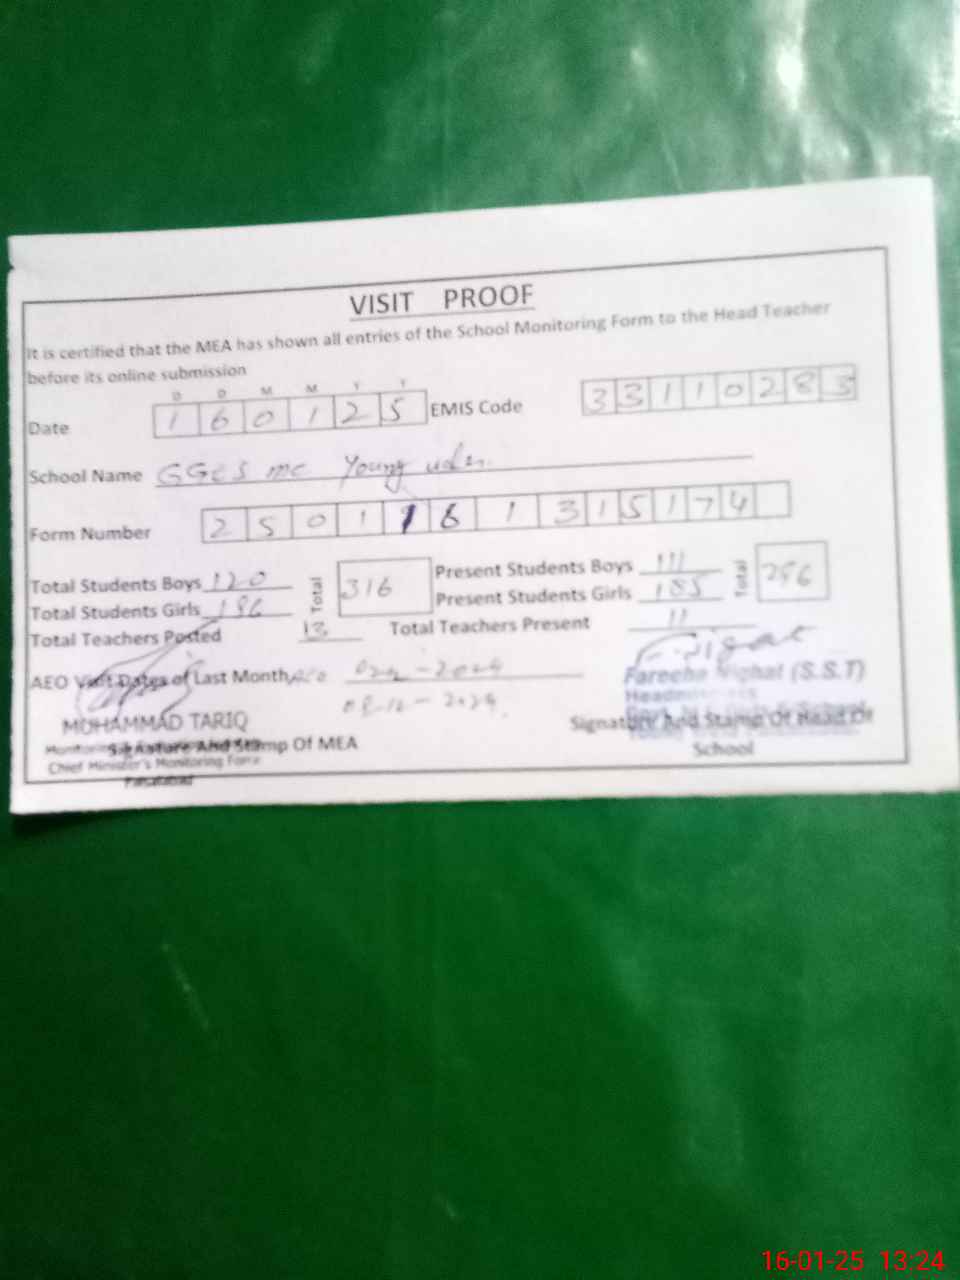 VISIT PROOF
It is certified that the MEA has shown all entries of the School Monitoring Form to the Head Teacher
before its online submission
D D M M Y Y
Date 1 6 0 1 2 5 EMIS Code 3 3 1 1 0 2 8 3
School Name GGES mc Young
Form Number 2 5 0 1 1 6 1 3 1 5 1 7 4
Total Students Boys 120 Total 316 Present Students Boys 111 Total 296
Total Students Girls 196 Present Students Girls 185
Total Teachers Posted 13 Total Teachers Present 11
AEO Visit Dates of Last Month
08-12-2024
Fareeha Nighat (S.S.T)
Headmistress
MUHAMMAD TARIQ
Signature And Stamp Of Head Of
School
Signature And Stamp Of MEA
Chief Minister's Monitoring Force
Faisalabad
16-01-25 13:24